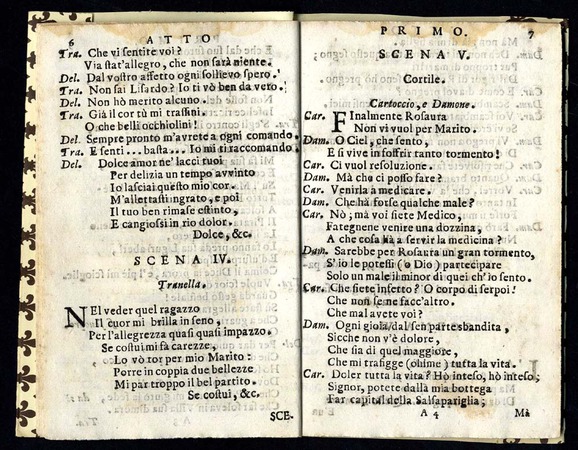 6 ATTO
Tra. Che vi sentite voi?
Via stat'allegro, che non sarà niente.
Del. Dal vostro affetto ogni sollievo spero.
Tra. Non sai Lisardo? Io ti vò ben da vero.
Del. Non hò merito alcuno.
Tra. Già il cor tù mi trafini.
O che belli occhiolini!
Del. Sempre pronto m'avrete a ogni comando.
Tra. E senti... basta... Io mi ti raccomando.
Del. Dolce amor ne' lacci tuoi
Per delizia un tempo avvinto
Io lasciai questo mio cor.
M'allettasti ingrato, e poi
Il tuo ben rimase estinto,
E cangiossi in rio dolor.
Dolce, &c.
SCENA IV.
Tranella.
NEl veder quel ragazzo
Il cuor mi brilla in seno,
Per l'allegrezza quasi quasi impazzo.
Se costui mi fà carezze,
Lo vò tor per mio Marito:
Porre in coppia due bellezze
Mi par troppo il bel partito.
Se costui, &c.
SCE-
PRIMO. 7
SCENA V.
Cortile.
Cartoccio, e Damone.
Car. FInalmente Rosaura
Non vi vuol per Marito.
Dam. O Ciel, che sento,
E si vive in soffrir tanto tormento!
Car. Ci vuol resoluzione.
Dam. Mà che ci posso fare?
Car. Venirla a medicare.
Dam. Che hà forse qualche male?
Car. Nò; mà voi siete Medico,
Fategnene venire una dozzina,
A che cosa hà a servir la medicina?
Dam. Sarebbe per Rosaura un gran tormento,
S'io le potessi (ò Dio) partecipare
Solo un male il minor di quei ch'io sento.
Car. Che siete infetto? O corpo di serpoi!
Che non se ne facc'altro.
Che mal avete voi?
Dam. Ogni gioia dal sen parte sbandita,
Sicche non v'è dolore,
Che sia di quel maggiore,
Che mi trafigge (ohime) tutta la vita.
Car. Doler tutta la vita? Hò inteso, hò inteso;
Signor, potete dalla mia bottega
Far capital della Salsapariglia;
A 4 Mà